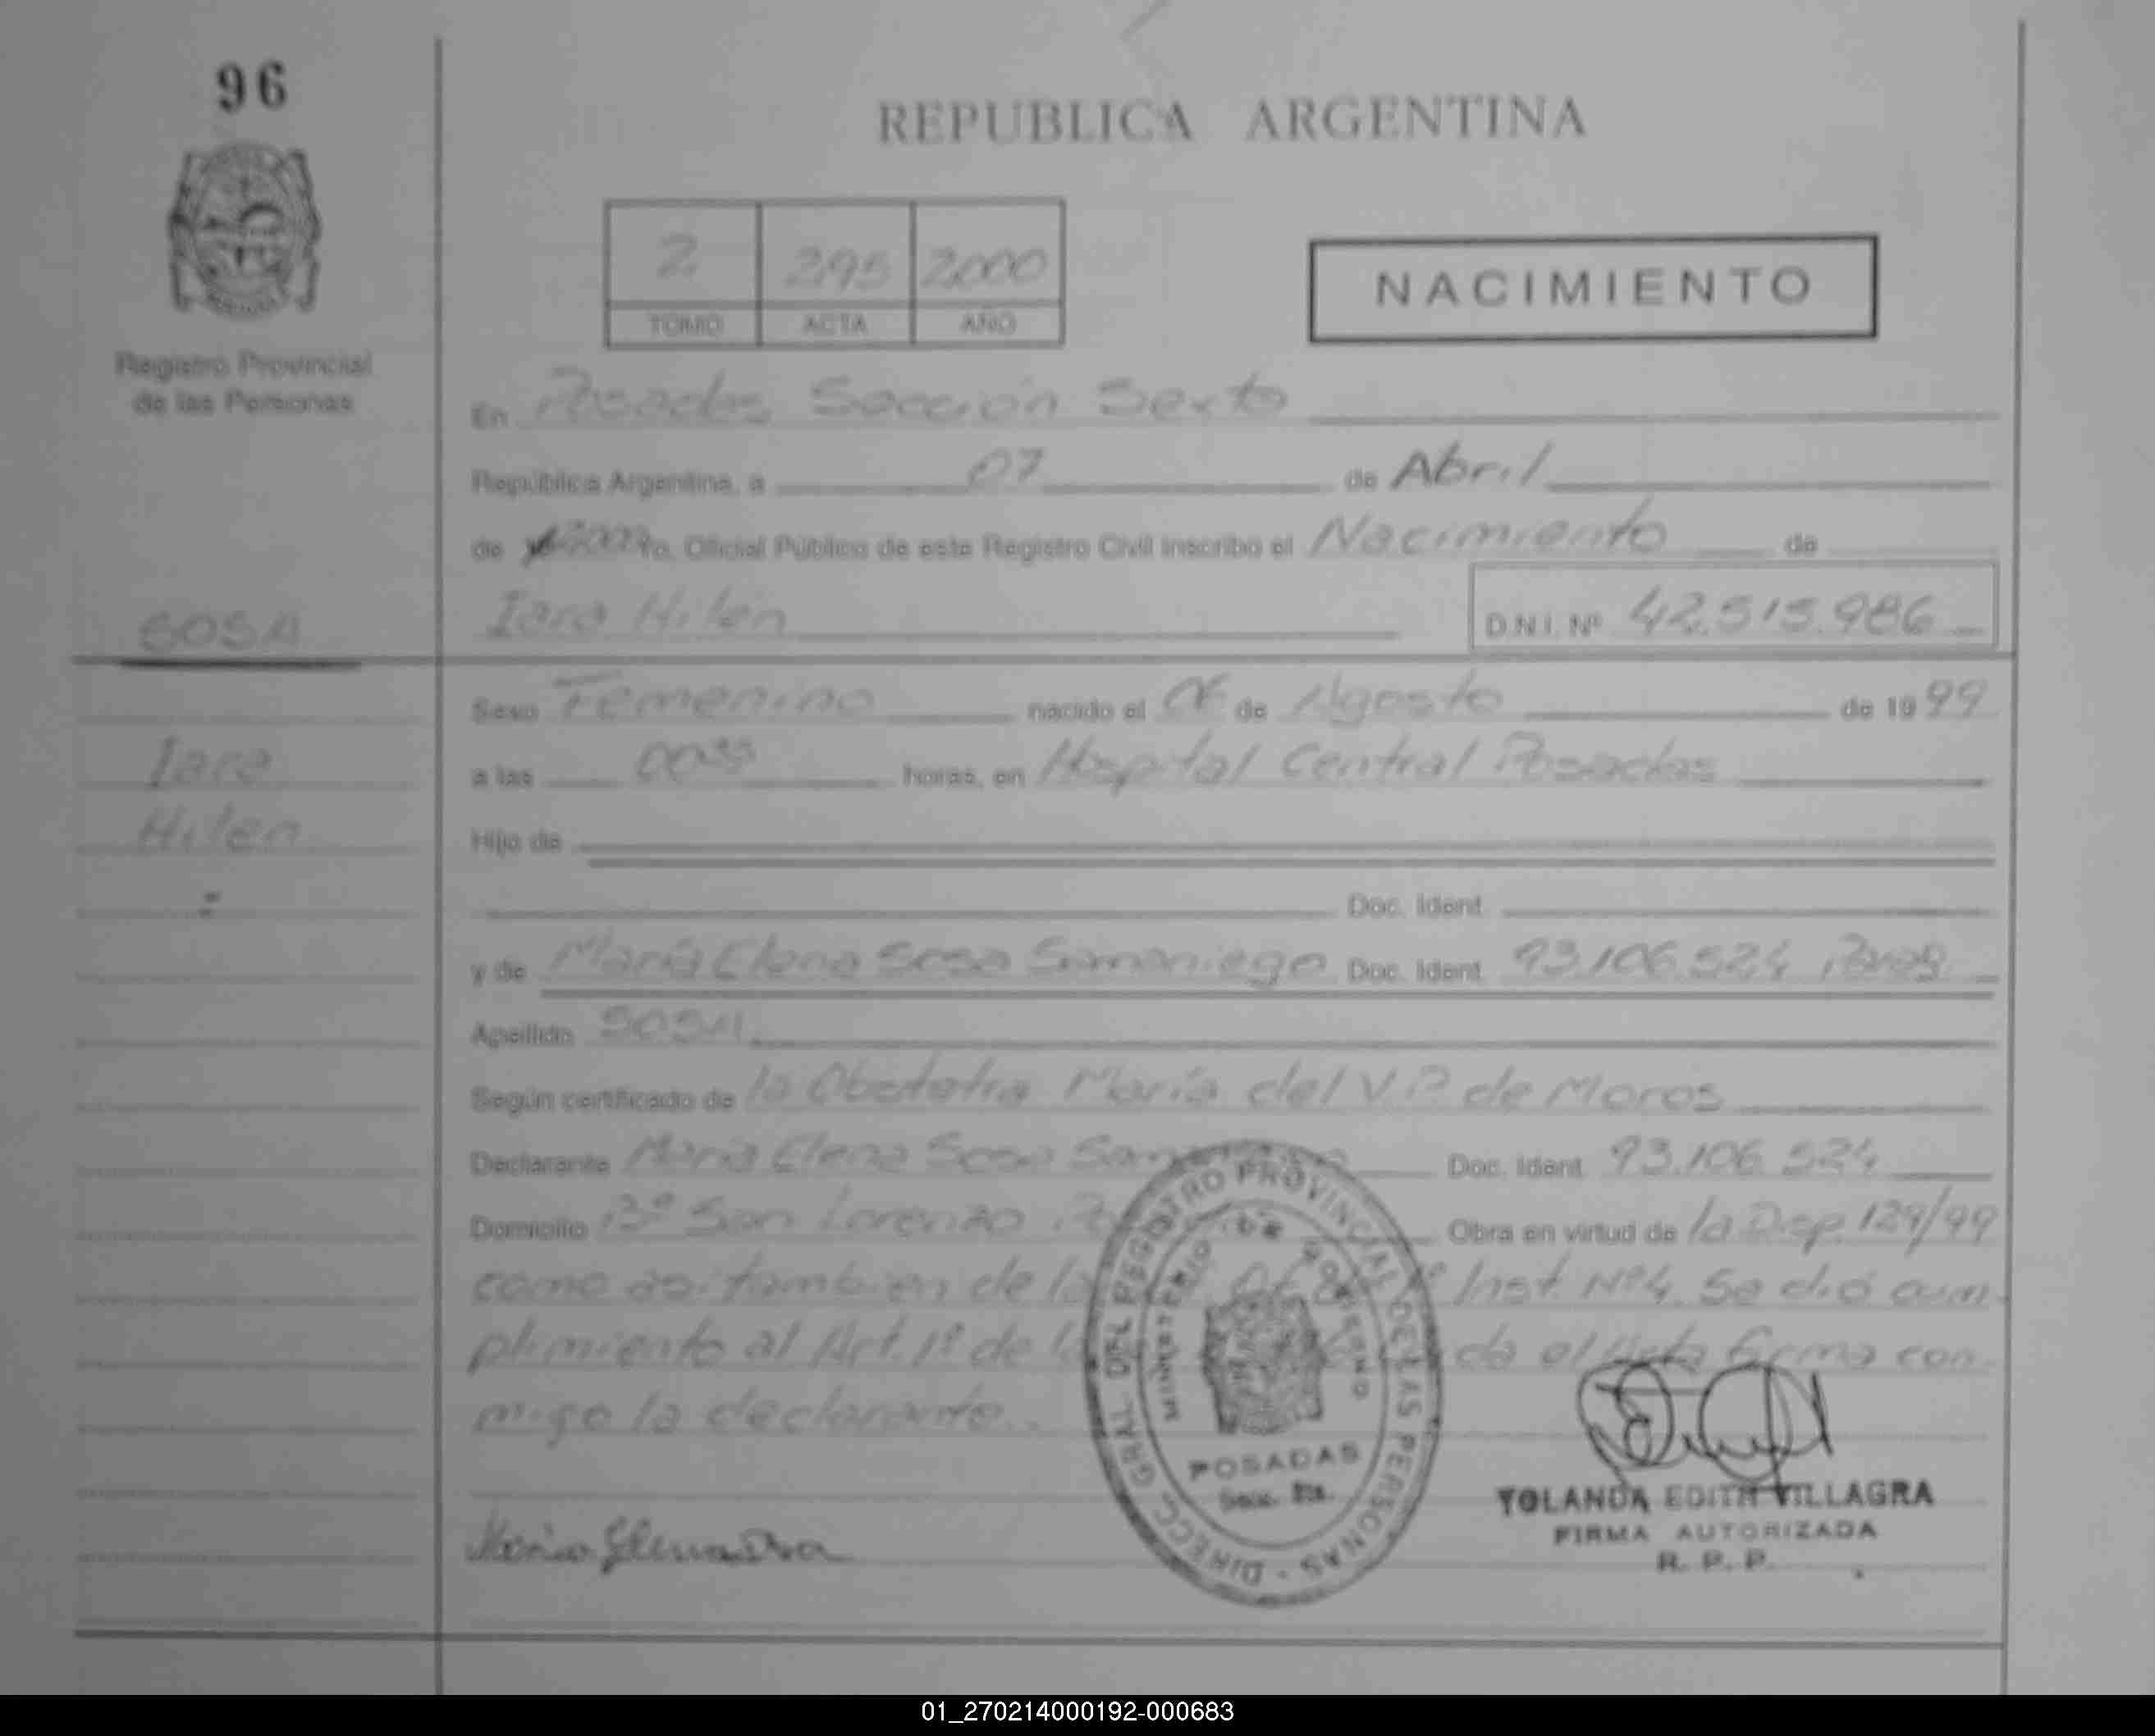 96
REPUBLICA ARGENTINA
2 295 2000
TOMO ACTA AÑO
NACIMIENTO
Registro Provincial
de las Personas
En Posadas Sección Sexta
República Argentina, a 07 de Abril
de 2000 Yo, Oficial Público de este Registro Civil inscribo el Nacimiento de
SOSA
Iara Hilen D.N.I. Nº 42.515.986
Sexo Femenino nacido el 06 de Agosto de 1999
Iara
a las 00 horas, en Hospital Central Posadas
Hilen
Hijo de
Doc. Ident.
y de María Elena Sosa Samaniego Doc. Ident. 93.106.524
Apellido SOSA
Según certificado de la Obstetra María del V.P. de Moros
Declarante María Elena Sosa Doc. Ident. 93.106.524
Domicilio Bº San Lorenzo Obra en virtud de la Disp. 129/99
como asi tambien de la Inst. Nº4. Se dió cum
plimiento al Art. 1º de el Acta firma con
migo la declarante.
DIRECC GRAL DEL REGISTRO PROVINCIAL DE LAS PERSONAS
MINISTERIO DE GOBIERNO
POSADAS
YOLANDA EDITH VILLAGRA
FIRMA AUTORIZADA
R. P. P.
01_270214000192-000683